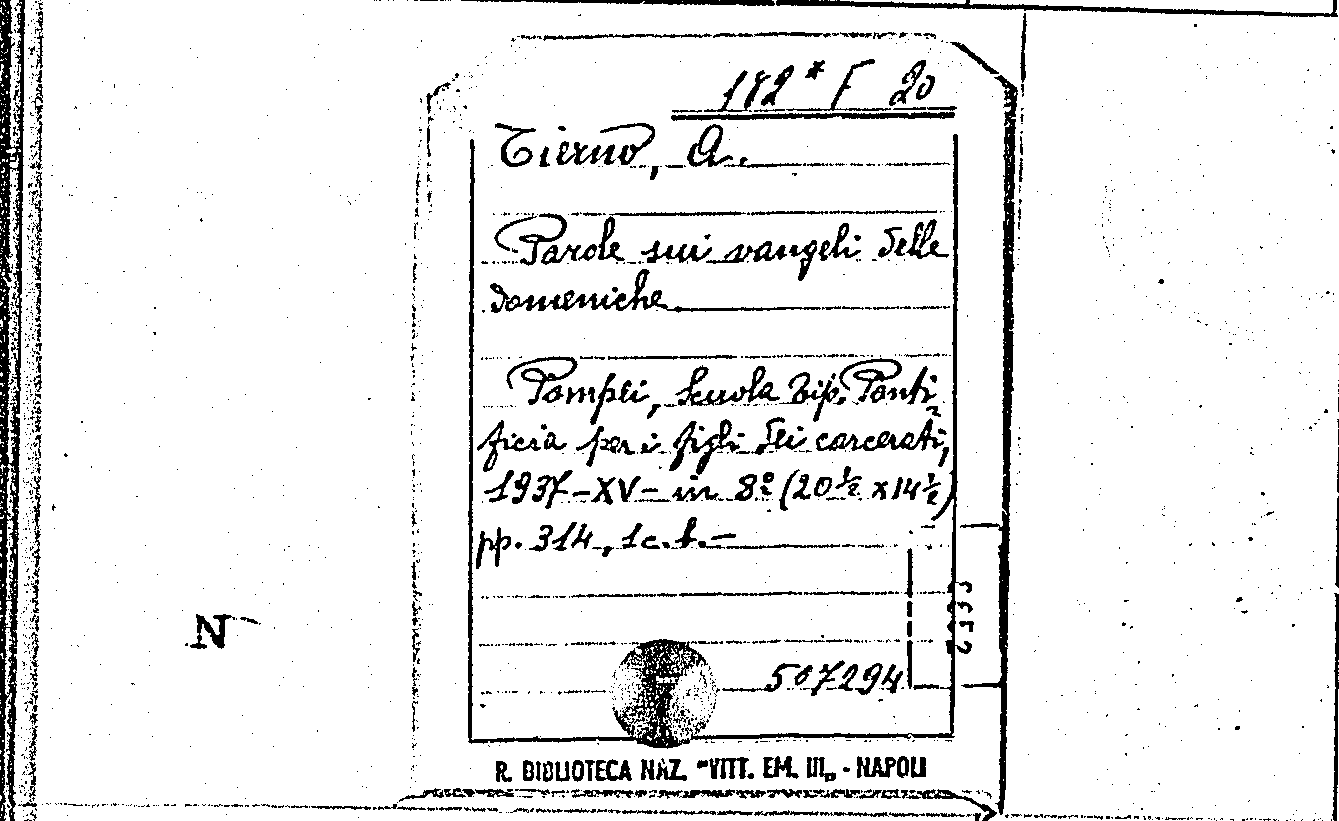 182* F 20
Tierno, A.
Parole sui vangeli delle
domeniche
Pompei, Scuola Tip. Ponti-
ficia per i figli dei carcerati,
1937-XV- in 8º (20 ½ x 14 ½)
pp. 314, 1 c. b. —
507294
R. BIBLIOTECA NAZ. "VITT. EM. III„ - NAPOLI
N